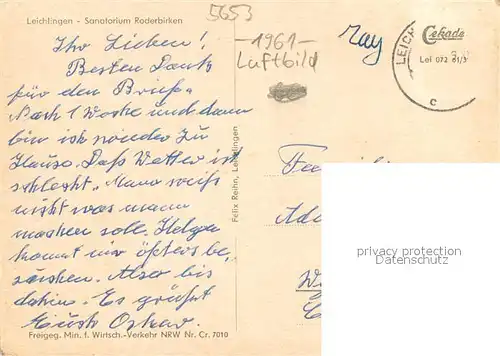 Leichlingen - Sanatorium Roderbirken
5653
-1961-
Luftbild
Ray
LEICH
Cekade
Lei 072 61/3
c
Ihr Lieben!
Besten Dank
für den Brief.
Noch 1 Woche und dann
bin ich wieder zu
Hause. Daß Wetter ist
schlecht. Mann weiß
nicht was mann
machen soll. Helga
kommt mir öfters be,
suchen. Also bis
dahin. Es grüßt
Euch Oskar.
Felix Reihn, Leichlingen
Freigeg. Min. f. Wirtsch.-Verkehr NRW Nr. Cr. 7010
Fami
privacy protection
Datenschutz